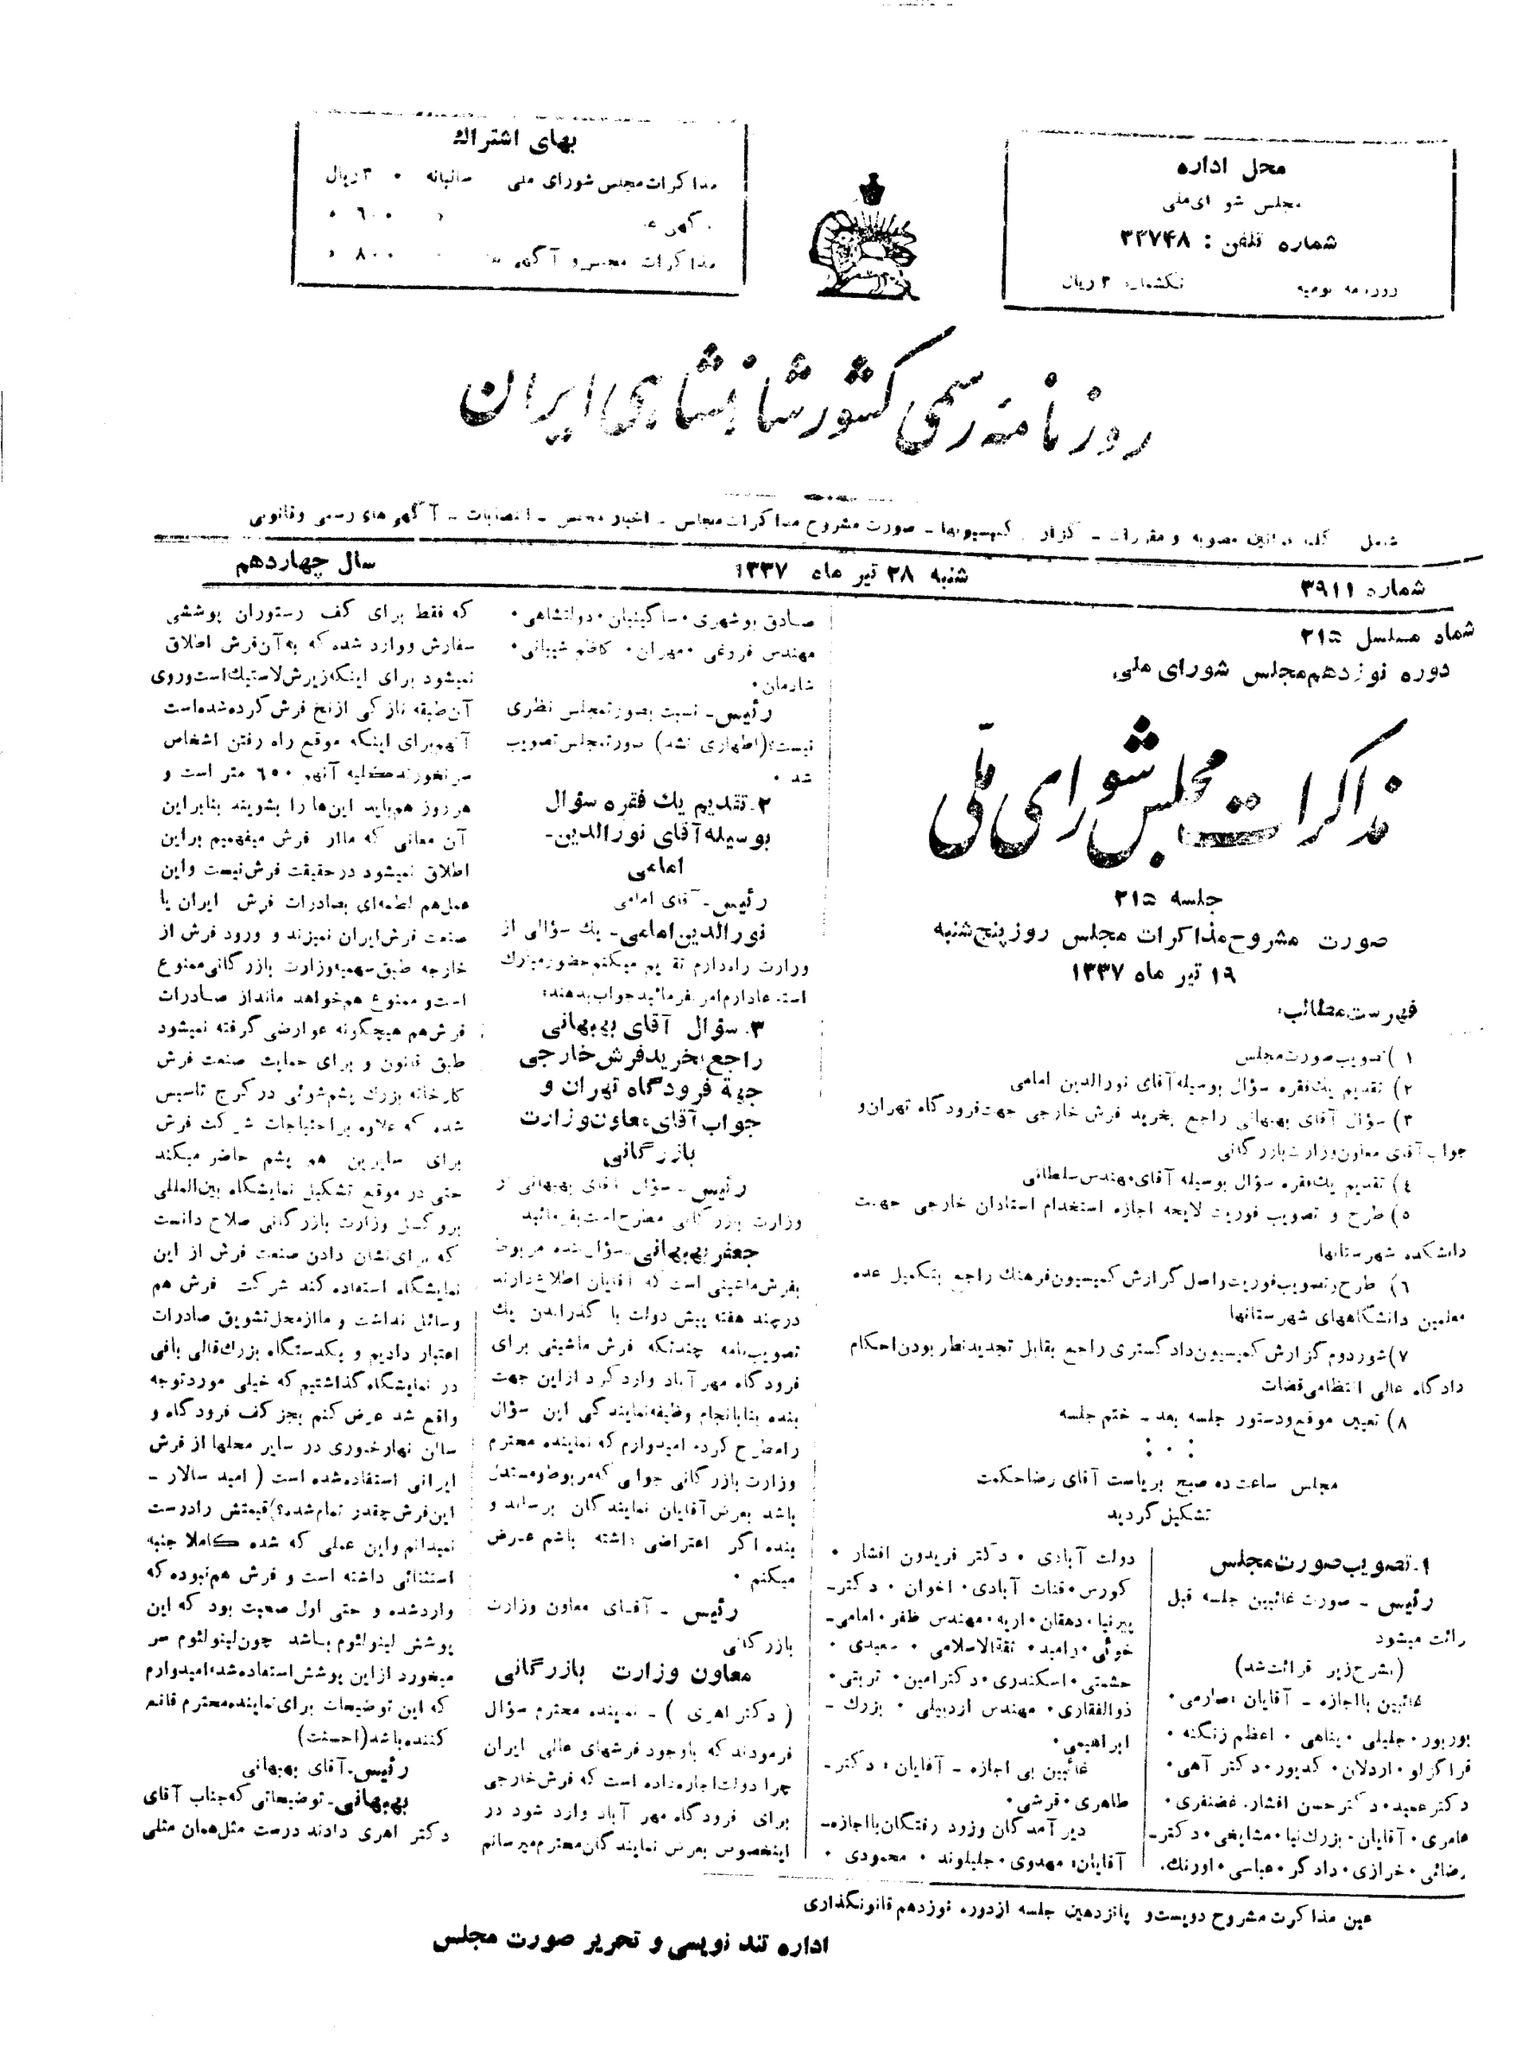 محل اداره
مجلس شورای ملی
شماره تلفن : ۳۳۷۴۸
روزنامه یومیه تکشماره ۳ ریال
بهای اشتراك
مذاکرات مجلس شورای ملی سالیانه ریال
۶۰۰
مذاکرات مجلس و آگهی ها ۸۰۰
روزنامه رسمی کشور شاهنشاهی ایران
شامل کلیه قوانین مصوبه و مقررات - گزارش کمیسیونها - صورت مشروح مذاکرات مجلس - اخبار مجلس - انتصابات - آگهی های رسمی و قانونی
شماره ۳۹۱۱ شنبه ۲۸ تیر ماه ۱۳۳۷ سال چهاردهم
شماره مسلسل ۲۱۵
دوره نوزدهم مجلس شورای ملی
مذاکرات مجلس شورای ملی
جلسه ۲۱۵
صورت مشروح مذاکرات مجلس روز پنج شنبه
۱۹ تیر ماه ۱۳۳۷
فهرست مطالب:
۱) تصویب صورت مجلس
۲) تقدیم یك فقره سؤال بوسیله آقای نورالدین امامی
۳) سؤال آقای بهبهانی راجع بخرید فرش خارجی جهت فرودگاه تهران و
جواب آقای معاون وزارت بازرگانی
۴) تقدیم یك فقره سؤال بوسیله آقای مهندس سلطانی
۵) طرح و تصویب فوریت لایحه اجازه استخدام استادان خارجی جهت
دانشکده شهرستانها
۶) طرح و تصویب فوریت و اصل گزارش کمیسیون فرهنك راجع بتکمیل عده
معلمین دانشگاههای شهرستانها
۷) شور دوم گزارش کمیسیون دادگستری راجع بقابل تجدیدنظر بودن احکام
دادگاه عالی انتظامی قضات
۸) تعیین موقع و دستور جلسه بعد - ختم جلسه
مجلس ساعت ده صبح بریاست آقای رضا حکمت
تشکیل گردید
۱- تصویب صورت مجلس
رئیس - صورت غائبین جلسه قبل
رائت میشود
(بشرح زیر قرائت شد)
غائبین با اجازه - آقایان : صارمی •
بوربور • جلیلی • پناهی • اعظم زنگنه •
قراگزلو • اردلان • کدیور • دکتر آهی •
دکتر عمید • دکتر حسن افشار • غضنفری •
عامری • آقایان • بزرك نیا • مشایخی • دکتر -
رضائی • خرازی • دادگر • عباسی • اورنك •
دولت آبادی • دکتر فریدون افشار •
کورس • قنات آبادی • اخوان • دکتر -
پیرنیا • دهقان • اریه • مهندس ظفر • امامی -
خوئی • رامبد • ثقة الاسلامی • سعیدی •
حشمتی • اسکندری • دکتر امین • تربتی •
ذوالفقاری • مهندس اردبیلی • بزرك -
ابراهیمی •
غائبین بی اجازه - آقایان : دکتر -
طاهری • قرشی •
دیر آمدگان و زود رفتگان با اجازه -
آقایان: مهدوی • جلیلوند • محمودی •
صادق بوشهری • ساگینیان • دولتشاهی •
مهندس فروغی • مهران • کاظم شیبانی •
شادمان •
رئیس - نسبت بصورتمجلس نظری
نیست؟ (اظهاری نشد) صورتمجلس تصویب
شد •
۲- تقدیم یك فقره سؤال
بوسیله آقای نورالدین -
امامی
رئیس - آقای امامی
نورالدین امامی - یك سؤالی از
وزارت راه دارم تقدیم میکنم حضور مبارك
استدعا دارم امر بفرمائید جواب بدهند
۳- سؤال آقای بهبهانی
راجع بخرید فرش خارجی
جهة فرودگاه تهران و
جواب آقای معاون وزارت
بازرگانی
رئیس - سؤال آقای بهبهانی از
وزارت بازرگانی مطرح است بفرمائید
جعفر بهبهانی - سؤال بنده مربوط
بفرش ماشینی است که آقایان اطلاع دارند
در چند هفته پیش دولت با گذراندن یك
تصویب نامه چند تکه فرش ماشینی برای
فرودگاه مهر آباد وارد کرد از این جهت
بنده بنا بانجام وظیفه نمایندگی این سؤال
را مطرح کرده امیدوارم که نماینده محترم
وزارت بازرگانی جوابی که مربوط و مستدل
باشد بعرض آقایان نمایندگان برساند و
بنده اگر اعتراضی داشته باشم عرض
میکنم •
رئیس - آقای معاون وزارت
بازرگانی
معاون وزارت بازرگانی
(دکتر اهری) - نماینده محترم سؤال
فرمودند که باوجود فرشهای عالی ایران
چرا دولت اجازه داده است که فرش خارجی
برای فرودگاه مهر آباد وارد شود در
اینخصوص بعرض نمایندگان محترم میرسانم
که فقط برای کف رستوران پوششی
سفارش و وارد شده که به آن فرش اطلاق
نمیشود برای اینکه زیرش لاستیك است و روی
آن طبقه نازکی از نخ فرش کرده شده است
آنهم برای اینکه موقع راه رفتن اشخاص
سر نخورند مظلیه آنهم ۶۵۰ متر است و
هر روز هم باید این ها را بشویند بنابراین
آن معانی که ما از فرش میفهمیم براین
اطلاق نمیشود در حقیقت فرش نیست و این
عمل هم لطمه ای بصادرات فرش ایران یا
صنعت فرش ایران نمیزند و ورود فرش از
خارجه طبق سهمیه وزارت بازرگانی ممنوع
است و ممنوع هم خواهد ماند از صادرات
فرش هم هیچگونه عوارضی گرفته نمیشود
طبق قانون و برای حمایت صنعت فرش
کارخانه بزرك پشم شوئی در کرج تاسیس
شده که علاوه بر احتیاجات شرکت فرش
برای سایرین هم پشم حاضر میکند
حتی در موقع تشکیل نمایشگاه بین المللی
بروکسل وزارت بازرگانی صلاح دانست
که برای نشان دادن صنعت فرش از این
نمایشگاه استفاده کند شرکت فرش هم
وسائل نداشت و ما از محل تشویق صادرات
اعتبار دادیم و یکدستگاه بزرك قالی بافی
در نمایشگاه گذاشتیم که خیلی مورد توجه
واقع شد عرض کنم بجز کف فرودگاه و
سالن نهارخوری در سایر محلها از فرش
ایرانی استفاده شده است (امید سالار -
این فرش چقدر تمام شده؟) قیمتش را درست
نمیدانم و این عملی که شده کاملا جنبه
استثنائی داشته است و فرش هم نبوده که
وارد شده و حتی اول صحبت بود که این
پوشش لینولئوم باشد چون لینولئوم سر
میخورد از این پوشش استفاده شده امیدوارم
که این توضیحات برای نماینده محترم قانع
کننده باشد (احسنت)
رئیس - آقای بهبهانی
بهبهانی - توضیحاتی که جناب آقای
دکتر اهری دادند درست مثل همان مثلی
عین مذاکرت مشروح دویست و پانزدهمین جلسه از دوره نوزدهم قانونگذاری
اداره تند نویسی و تحریر صورت مجلس